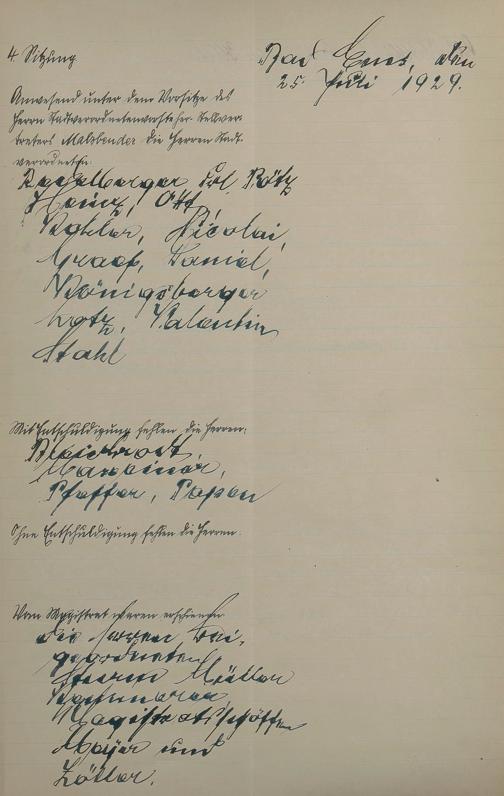 4. Sitzung
Bad Ems, den
25. Juli 1929.
Anwesend unter dem Vorsitze des
Herrn Stadtverordnetenvorsteher-Stellver-
treters Malzbender die Herren Stadt-
verordneten:
Heinz, Ott,
Kohler, Nicolai,
Graef, Daniel,
Königsberger
Lotz, Valentin
Stahl
Mit Entschuldigung fehlen die Herren:
Pfeffer, Papen
Ohne Entschuldigung fehlen die Herren:
Vom Magistrat waren erschienen
die Herren Bei-
geordneten
Sturm Müller
Magistratsschöffen
Majer und
Zöller.